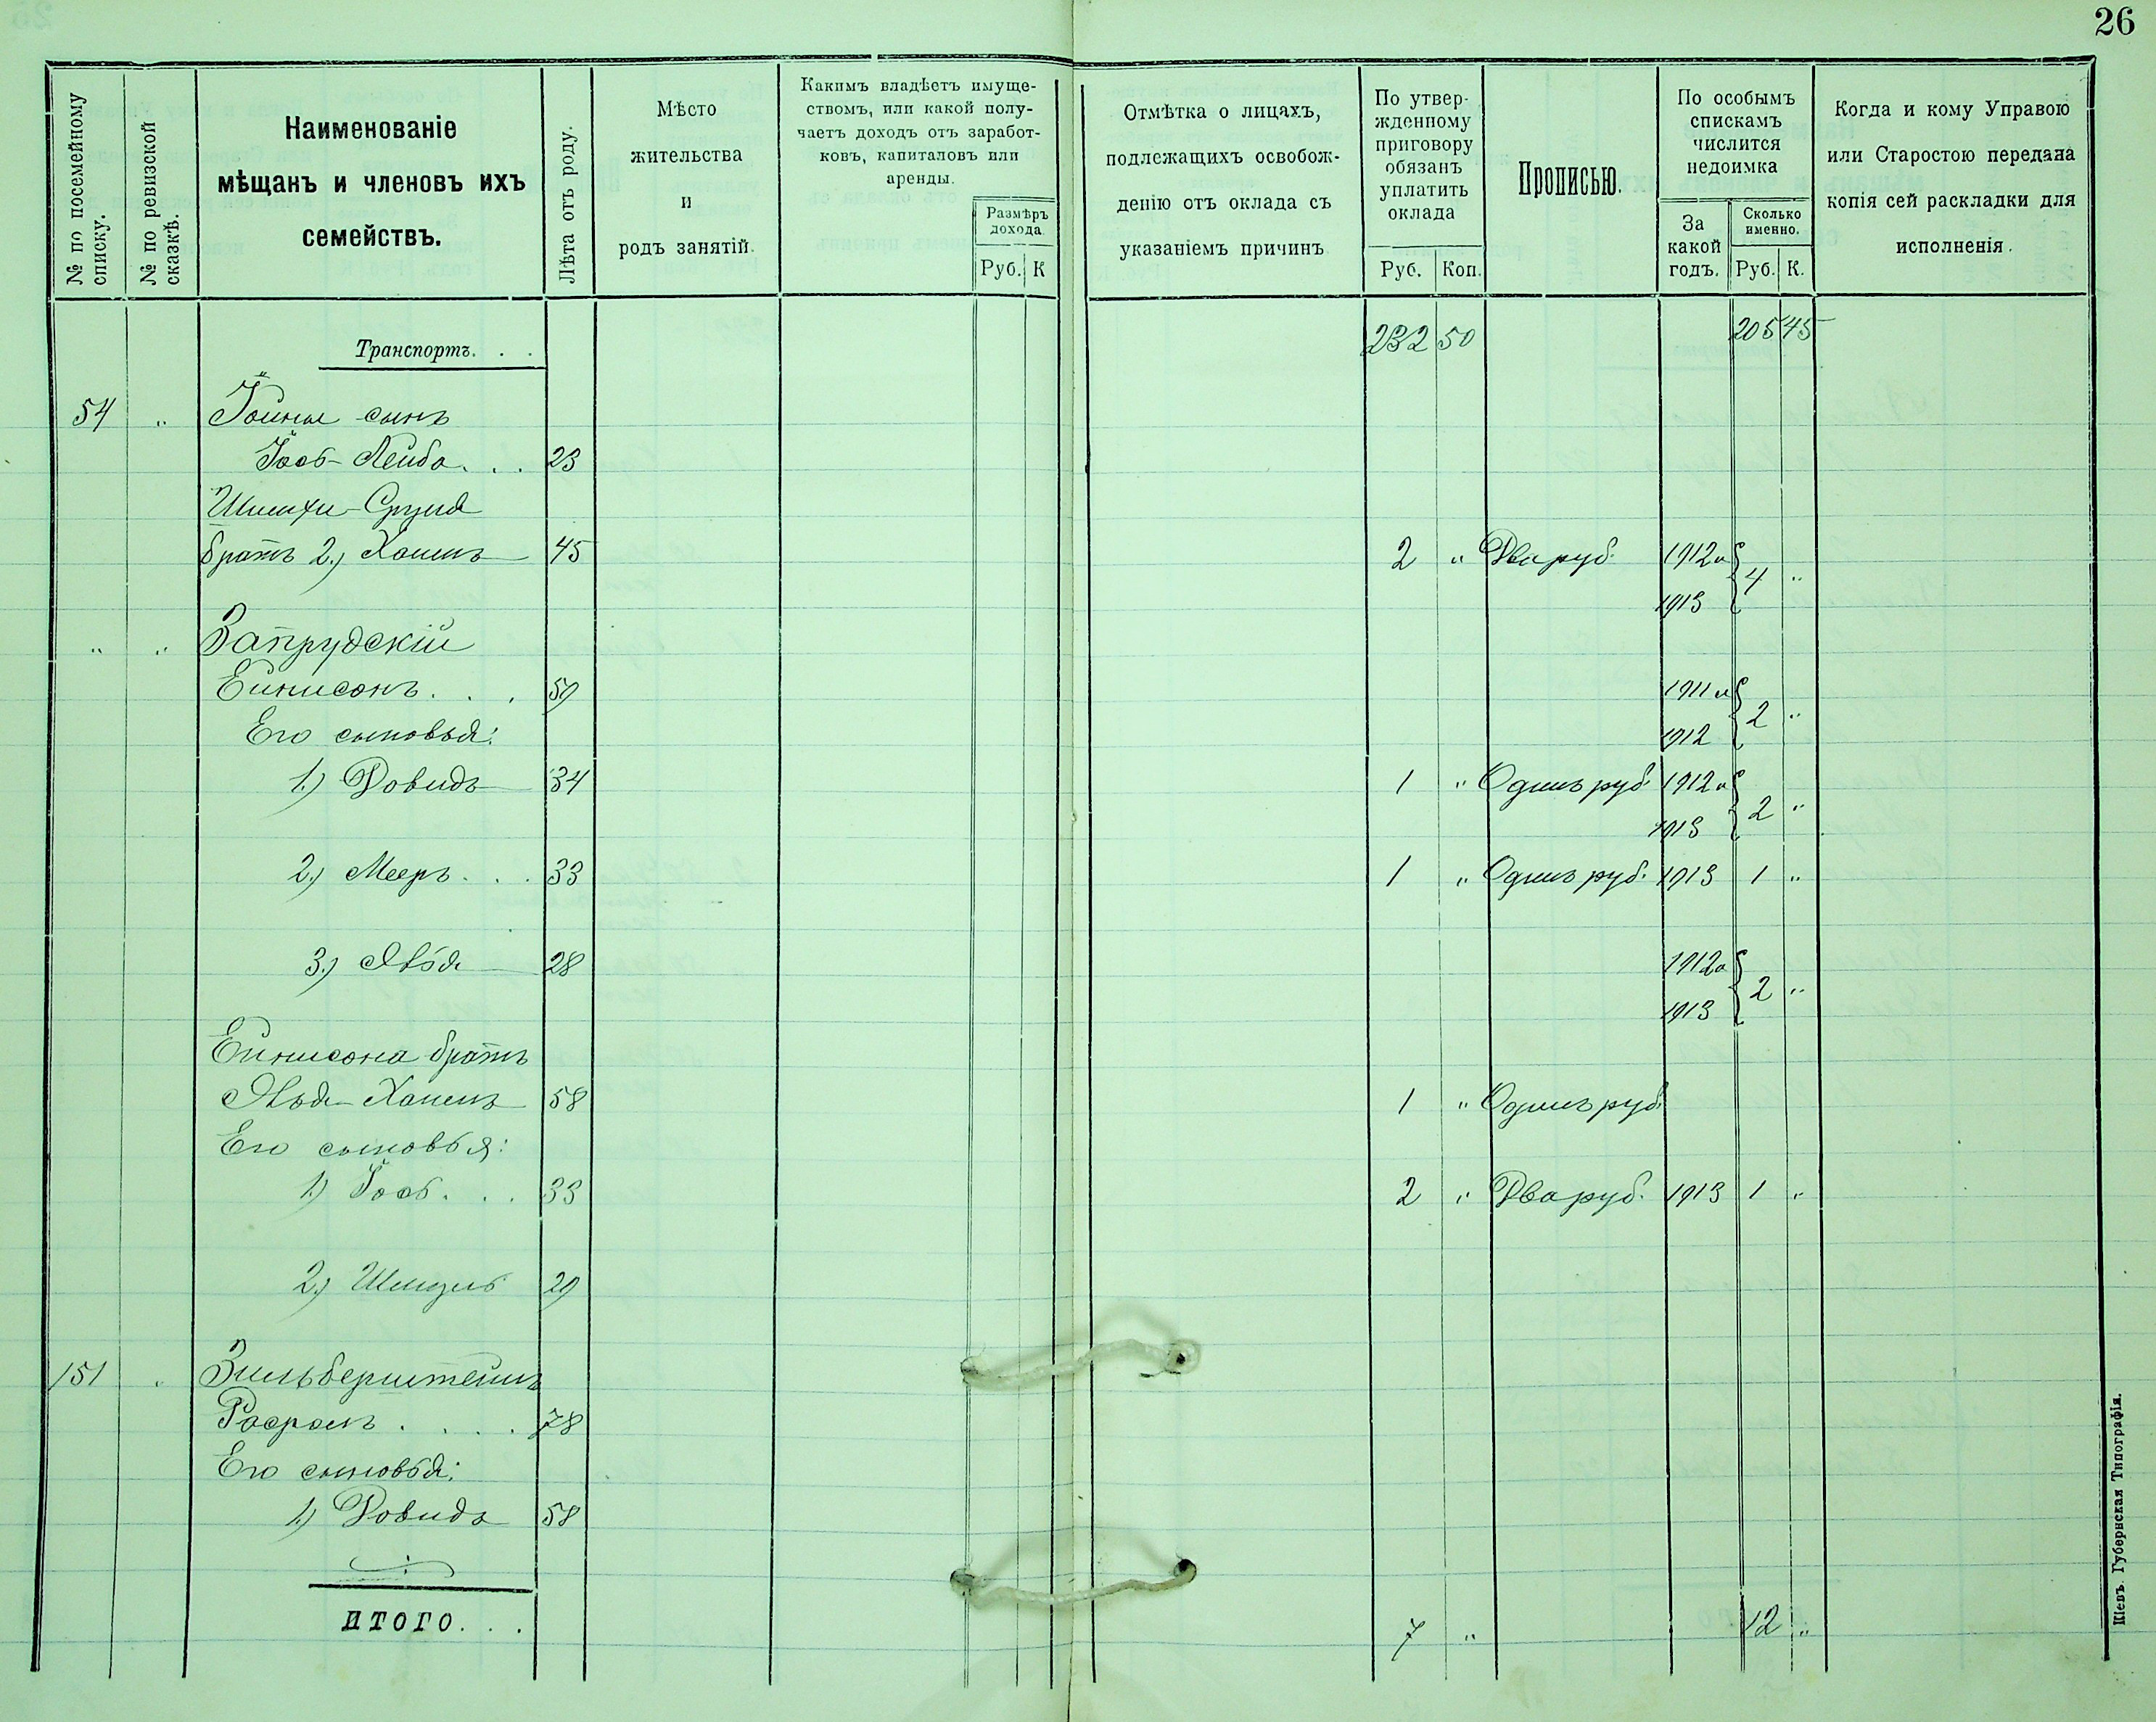 26
№ по посемейному списку.
№ по ревизской сказкѣ.
Наименованіе
мѣщанъ и членовъ ихъ
семействъ.
Лѣта отъ роду.
Мѣсто
жительства
и
родъ занятій.
Какимъ владѣетъ имуще-
ствомъ, или какой полу-
чаетъ доходъ отъ заработ-
ковъ, капиталовъ или
аренды.
Размѣръ
дохода.
Руб. К
Отмѣтка о лицахъ,
подлежащихъ освобож-
денію отъ оклада съ
указаніемъ причинъ
По утвер-
жденному
приговору
обязанъ
уплатить
оклада
Руб. Коп.
Прописью.
По особымъ
спискамъ
числится
недоимка
За
какой
годъ.
Сколько
именно.
Руб. К.
Когда и кому Управою
или Старостою передана
копія сей раскладки для
исполненія.
Транспортъ. . . 232 50 205 45
54 " сынъ
Лейба. . . 23
братъ 2.) 45 2 " Два руб. 1912 и 4 "
1913
" " Запрудскій
Ейнисонъ. . . 59 1911 и 2 "
Его сыновья: 1912
1.) Довидъ 34 1 " Одинъ руб. 1912 и 2 "
1913
2.) Мееръ. . . 33 1 " Одинъ руб. 1913 1 "
3.) 28 1912 и 2 "
1913
Ейнисона братъ
58 1 " Одинъ руб.
Его сыновья:
1.) . . . 33 2 " Два руб. 1913 1 "
2.) 29
151 " Зильберштейнъ
. . . . 78
Его сыновья:
1.) Довидъ 58
ИТОГО. . . 7 " 12 "
Кіевъ. Губернская Типографія.